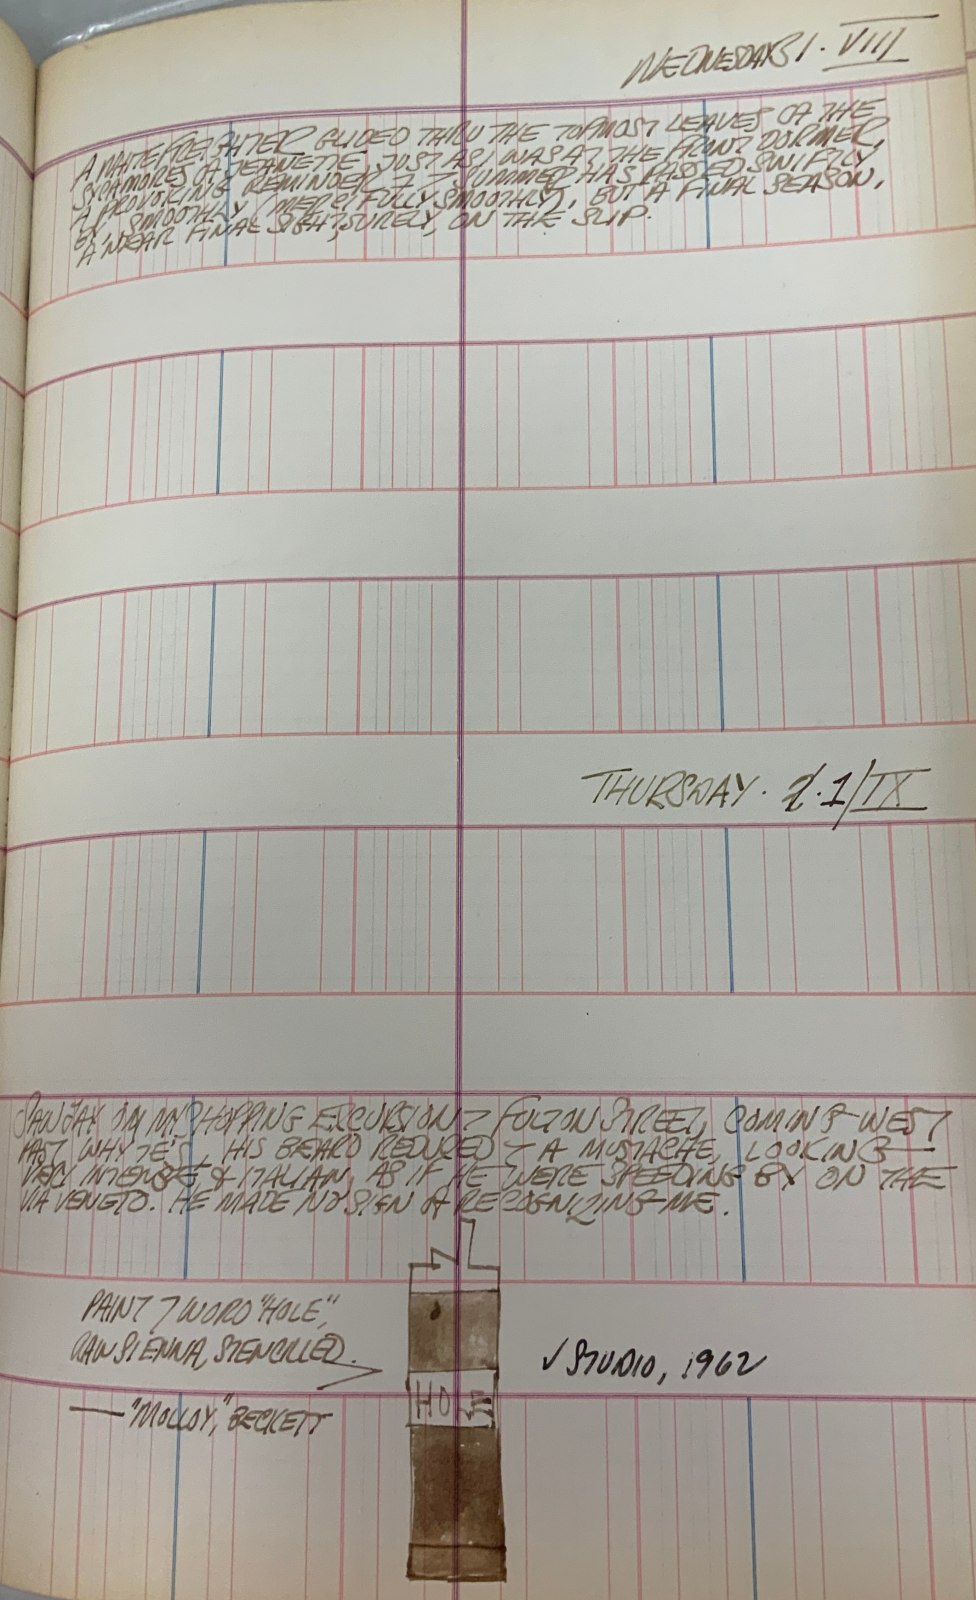 WEDNESDAY 31. VIII
A WHITE FREIGHTER GLIDED THRU THE TOPMOST LEAVES OF THE
SYCAMORES OF JEANETTE, JUST AS I WAS AT THE FRONT DORMER,
A PROVOKING REMINDER SUMMER HAS PASSED SWIFTLY
BY SMOOTHLY (MERCIFULLY SMOOTHLY). BUT A FINAL SEASON,
A NEAR FINAL SIGHT, SURELY, ON THE SLIP.
THURSDAY. 1/IX
SAW JAY ON MY SHOPPING EXCURSION FULTON STREET, COMING WEST
PAST WHYTE'S, HIS BEARD REDUCED A MUSTACHE, LOOKING
VERY INTENSE, & ITALIAN, AS IF HE WERE SPEEDING BY ON THE
VIA VENETO. HE MADE NO SIGN OF RECOGNIZING ME.
PAINT WORD "HOLE",
RAW SIENNA, STENCILLED.
HOLE
✓ STUDIO, 1962
— "MOLLOY," BECKETT